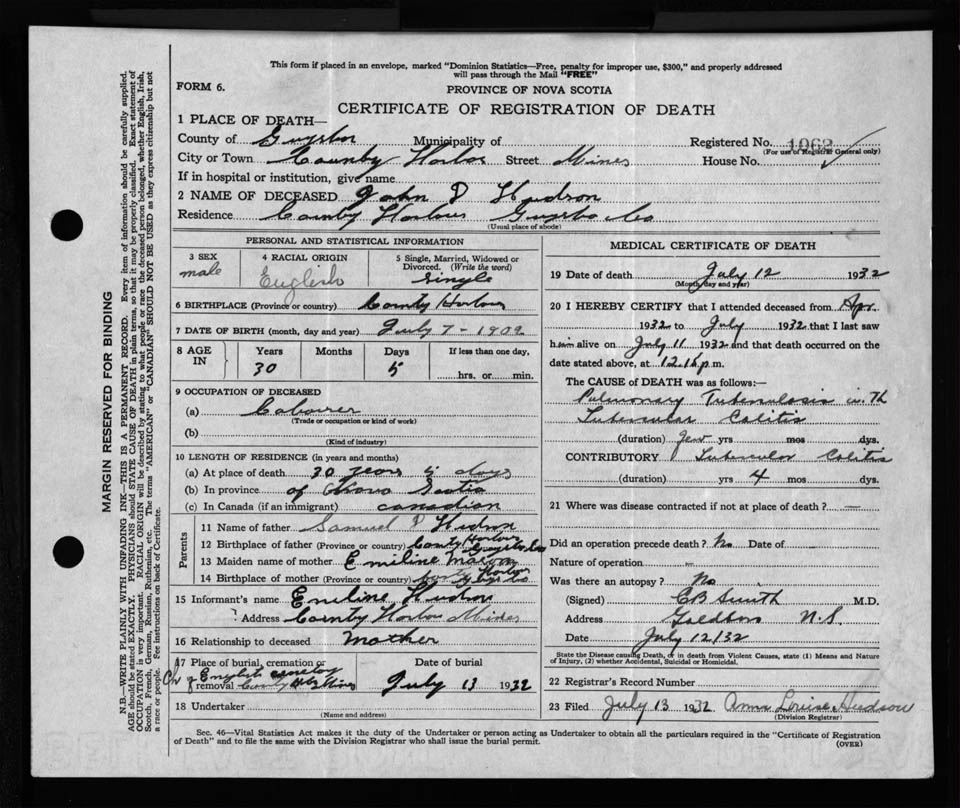 This form if placed in an envelope, marked "Dominion Statistics—Free, penalty for improper use, $300," and properly addressed
will pass through the Mail "FREE"
FORM 6.
PROVINCE OF NOVA SCOTIA
CERTIFICATE OF REGISTRATION OF DEATH
1 PLACE OF DEATH—
County of Guysboro Municipality of Registered No. 1062
(For use of Registrar General only)
City or Town Country Harbor Street Mines House No.
If in hospital or institution, give name
2 NAME OF DECEASED John D Hudson
Residence Country Harbour Guysboro Co
(Usual place of abode)
PERSONAL AND STATISTICAL INFORMATION
3 SEX male
4 RACIAL ORIGIN English
5 Single, Married, Widowed or Divorced. (Write the word) Single
6 BIRTHPLACE (Province or country) County Harbour
7 DATE OF BIRTH (month, day and year) July 7 - 1902
8 AGE IN Years Months Days If less than one day,
30 5 hrs. or min.
9 OCCUPATION OF DECEASED
(a) Labourer
(Trade or occupation or kind of work)
(b)
(Kind of industry)
10 LENGTH OF RESIDENCE (in years and months)
(a) At place of death 30 years 5 days
(b) In province of Nova Scotia
(c) In Canada (if an immigrant) Canadian
Parents
11 Name of father Samuel D Hudson
12 Birthplace of father (Province or country) County Harbour Guysboro Co
13 Maiden name of mother Emiline
14 Birthplace of mother (Province or country)
15 Informant's name Emeline Hudson
Address Country Harbor Mines
16 Relationship to deceased Mother
17 Place of burial, cremation or removal Ch of English cemetery Mines
Date of burial July 13 1932
18 Undertaker
(Name and address)
MEDICAL CERTIFICATE OF DEATH
19 Date of death July 12 1932
(Month, day and year)
20 I HEREBY CERTIFY that I attended deceased from Apr.
1932 to July 1932 that I last saw
him alive on July 11 1932 and that death occurred on the
date stated above, at 12.15 p.m.
The CAUSE of DEATH was as follows:—
Pulmonary Tuberculosis with
Tubercular Colitis
(duration) few yrs mos dys.
CONTRIBUTORY Tubercular Colitis
(duration) yrs 4 mos dys.
21 Where was disease contracted if not at place of death? —
Did an operation precede death? No Date of
Nature of operation
Was there an autopsy? No
(Signed) CB Smith M.D.
Address Goldboro N.S.
Date July 12/32
State the Disease causing Death, or in death from Violent Causes, state (1) Means and Nature
of Injury, (2) whether Accidental, Suicidal or Homicidal.
22 Registrar's Record Number
23 Filed July 13 1932 Anna Louise Hudson
(Division Registrar)
Sec. 46—Vital Statistics Act makes it the duty of the Undertaker or person acting as Undertaker to obtain all the particulars required in the "Certificate of Registration
of Death" and to file the same with the Division Registrar who shall issue the burial permit.
(OVER)
MARGIN RESERVED FOR BINDING
N.B.—WRITE PLAINLY WITH UNFADING INK—THIS IS A PERMANENT RECORD. Every item of information should be carefully supplied.
AGE should be stated EXACTLY. PHYSICIANS should STATE CAUSE OF DEATH in plain terms, so that it may be properly classified. Exact statement of
OCCUPATION is very important. RACIAL ORIGIN will be described by stating to what people or race the deceased person belonged, whether English, Irish,
Scotch, French, German, Russian, Ruthenian, etc. The terms "AMERICAN" or "CANADIAN" SHOULD NOT BE USED as they express citizenship but not
a race or people. Fee instructions on back of Certificate.